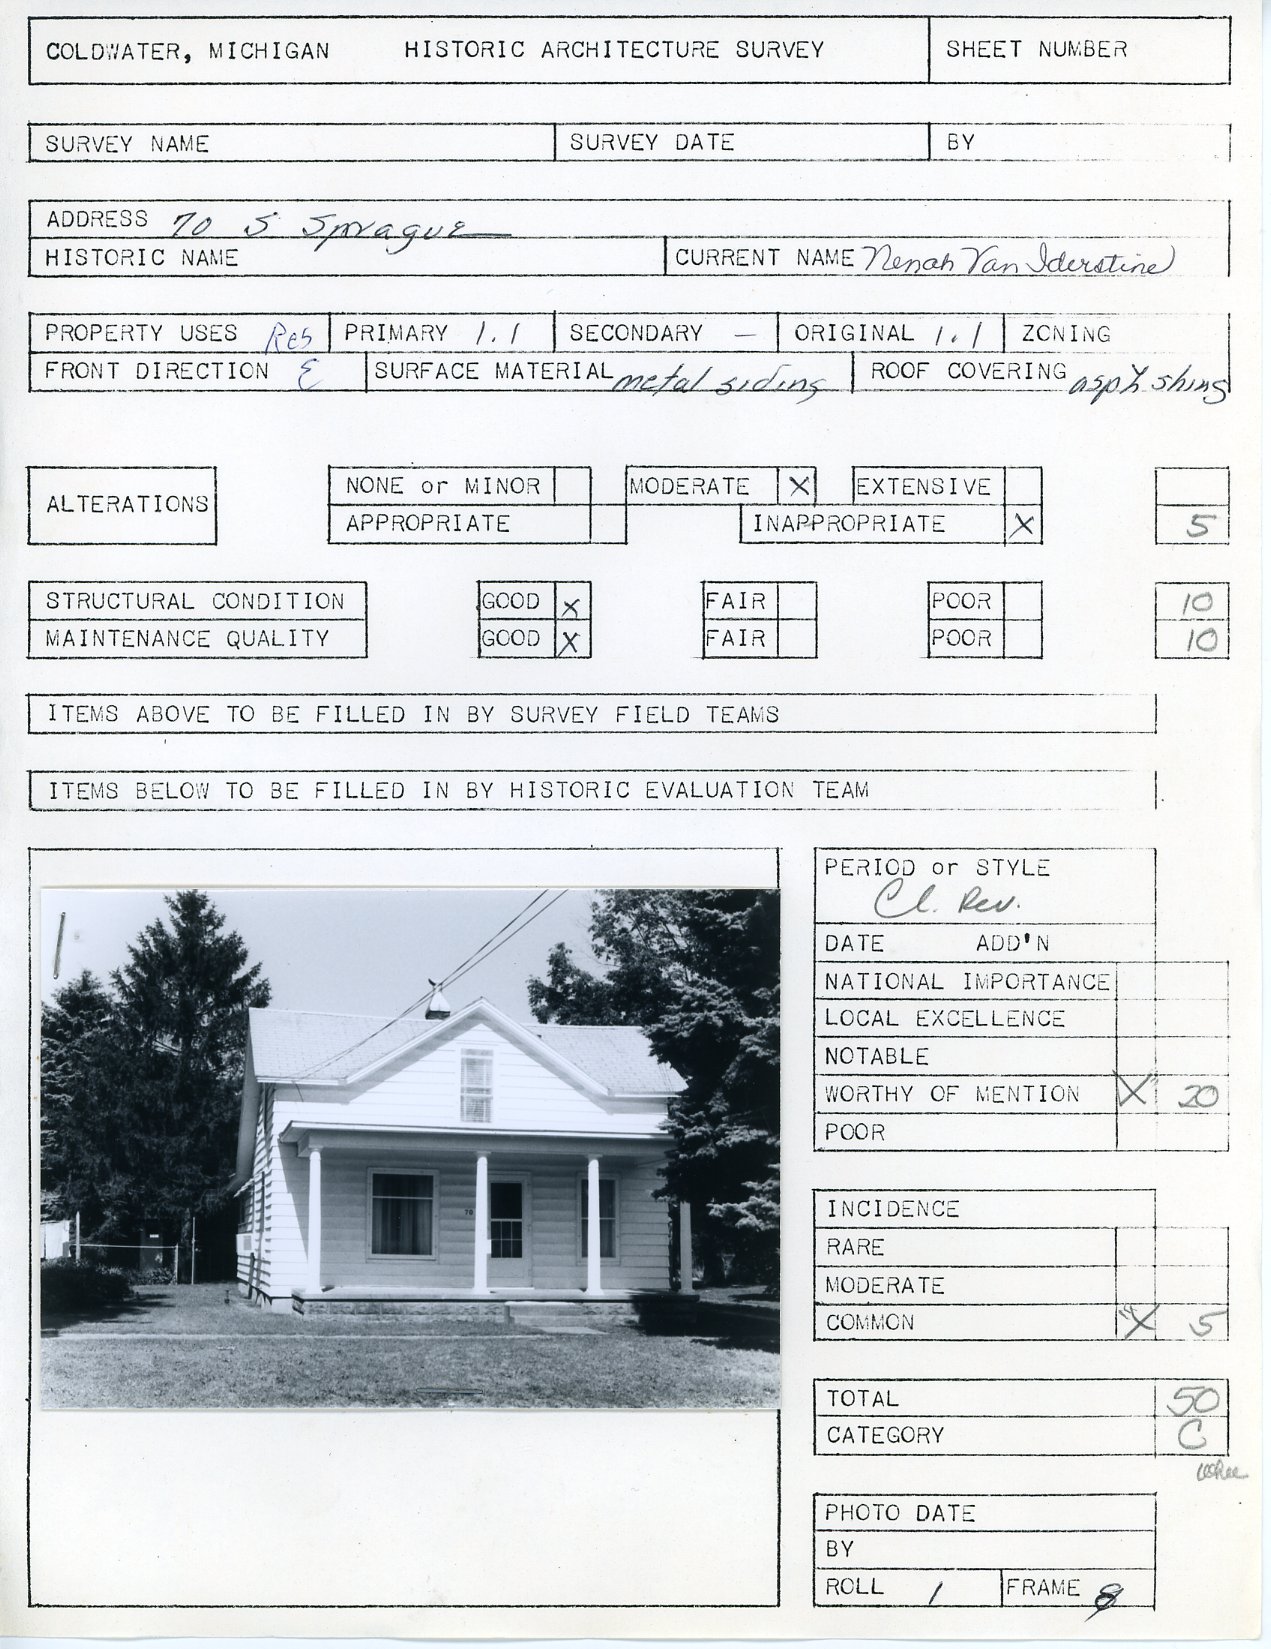 COLDWATER, MICHIGAN HISTORIC ARCHITECTURE SURVEY SHEET NUMBER
SURVEY NAME SURVEY DATE BY
ADDRESS 70 S Sprague
HISTORIC NAME CURRENT NAME Nenah Van Iderstine
PROPERTY USES Res PRIMARY 1.1 SECONDARY — ORIGINAL 1.1 ZONING
FRONT DIRECTION E SURFACE MATERIAL metal siding ROOF COVERING asph shing
ALTERATIONS NONE or MINOR MODERATE X EXTENSIVE
APPROPRIATE INAPPROPRIATE X 5
STRUCTURAL CONDITION GOOD X FAIR POOR 10
MAINTENANCE QUALITY GOOD X FAIR POOR 10
ITEMS ABOVE TO BE FILLED IN BY SURVEY FIELD TEAMS
ITEMS BELOW TO BE FILLED IN BY HISTORIC EVALUATION TEAM
PERIOD or STYLE
Cl. Rev.
DATE ADD'N
NATIONAL IMPORTANCE
LOCAL EXCELLENCE
NOTABLE
WORTHY OF MENTION X 20
POOR
INCIDENCE
RARE
MODERATE
COMMON X 5
TOTAL 50
CATEGORY C
PHOTO DATE
BY
ROLL 1 FRAME 8
70